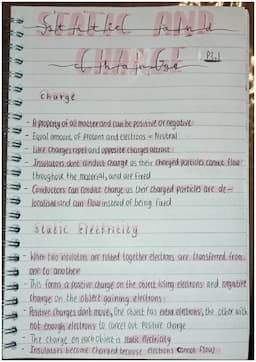 STATIC AND
Static and
CHARGE
Charge
Pg.1
Charge
- A property of all matter and can be positive or negative
- Equal amount of protons and electrons = Neutral
- Like charges repel and opposite charges attract
- Insulators dont conduct charge as their charged particles cannot flow
throughout the material, and are fixed
- Conductors can conduct charge as their charged particles are de-
localised and can flow instead of being fixed
Static Electricity
- When two insulators are rubbed together electrons are transferred from
one to another
- This forms a positive charge on the object losing electrons and negative
charge on the object gaining electrons
- Positive charges don't move, One object has extra electrons, the other with
not enough electrons to cancel out positive charge
- The charge on each object is static electricity
- Insulators become charged because electrons cannot flow